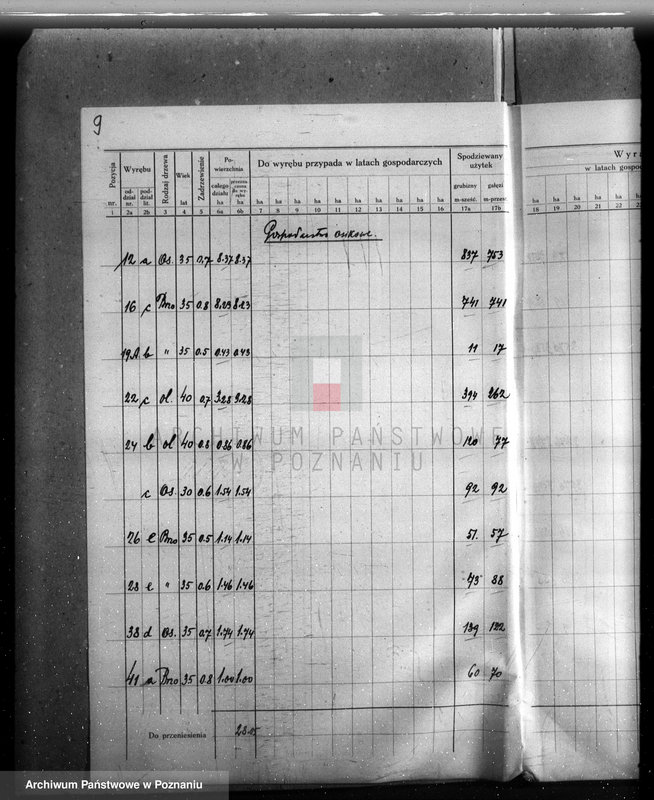 9
Pozycja Wyrębu Rodzaj drzewa Wiek Zadrzewienie Powierzchnia Do wyrębu przypada w latach gospodarczych Spodziewany użytek Wyrą
w latach gospod
oddział pododdział całego działu przeznaczona do wyrębu grubizny gałęzi
nr. nr. lit. lat ha ha ha ha ha ha ha ha ha ha ha ha m-sześć. m-przest. ha ha ha ha ha
1 2a 2b 3 4 5 6a 6b 7 8 9 10 11 12 13 14 15 16 17a 17b 18 19 20 21 22 23
Gospodarstwo
12 a Os. 35 0.7 8.37 8.37 837 753
16 c Brzo 35 0.8 8.23 8.23 741 741
19A b " 35 0.5 0.43 0.43 11 17
22 c ol. 40 0.7 3.28 3.28 394 262
24 b ol 40 0.8 0.86 0.86 120 77
c Os. 30 0.6 1.54 1.54 92 92
26 e Brzo 35 0.5 1.14 1.14 51. 57
28 e " 35 0.6 1.46 1.46 73 88
38 d Os. 35 0.7 1.74 1.74 139 122
41 a Brzo 35 0.8 1.00 1.00 60 70
Do przeniesienia 28.05
ARCHIWUM PAŃSTWOWE
W POZNANIU
Archiwum Państwowe w Poznaniu